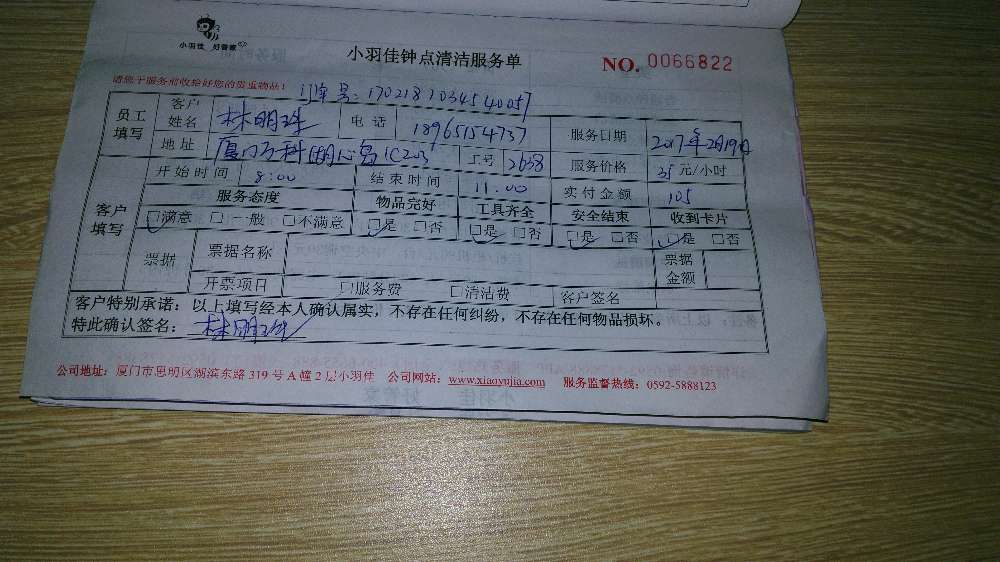 小羽佳 好管家
小羽佳钟点清洁服务单 NO. 0066822
请您于服务前收拾好您的贵重物品!
订单号:1702182034540057
员工填写 客户姓名 林明珠 电话 18965154737 服务日期 2017年2月19日
地址 厦门万科湖心岛1C203 工号 2638 服务价格 35元/小时
开始时间 8:00 结束时间 11:00 实付金额 105
客户填写 服务态度 物品完好 工具齐全 安全结束 收到卡片
☑满意 □一般 □不满意 ☑是 □否 ☑是 □否 ☑是 □否 ☑是 □否
票据 票据名称 票据金额
开票项目 □服务费 □清洁费 客户签名
客户特别承诺:以上填写经本人确认属实,不存在任何纠纷,不存在任何物品损坏。
特此确认签名:林明珠
公司地址:厦门市思明区湖滨东路319号A幢2层小羽佳 公司网站:www.xiaoyujia.com 服务监督热线:0592-5888123